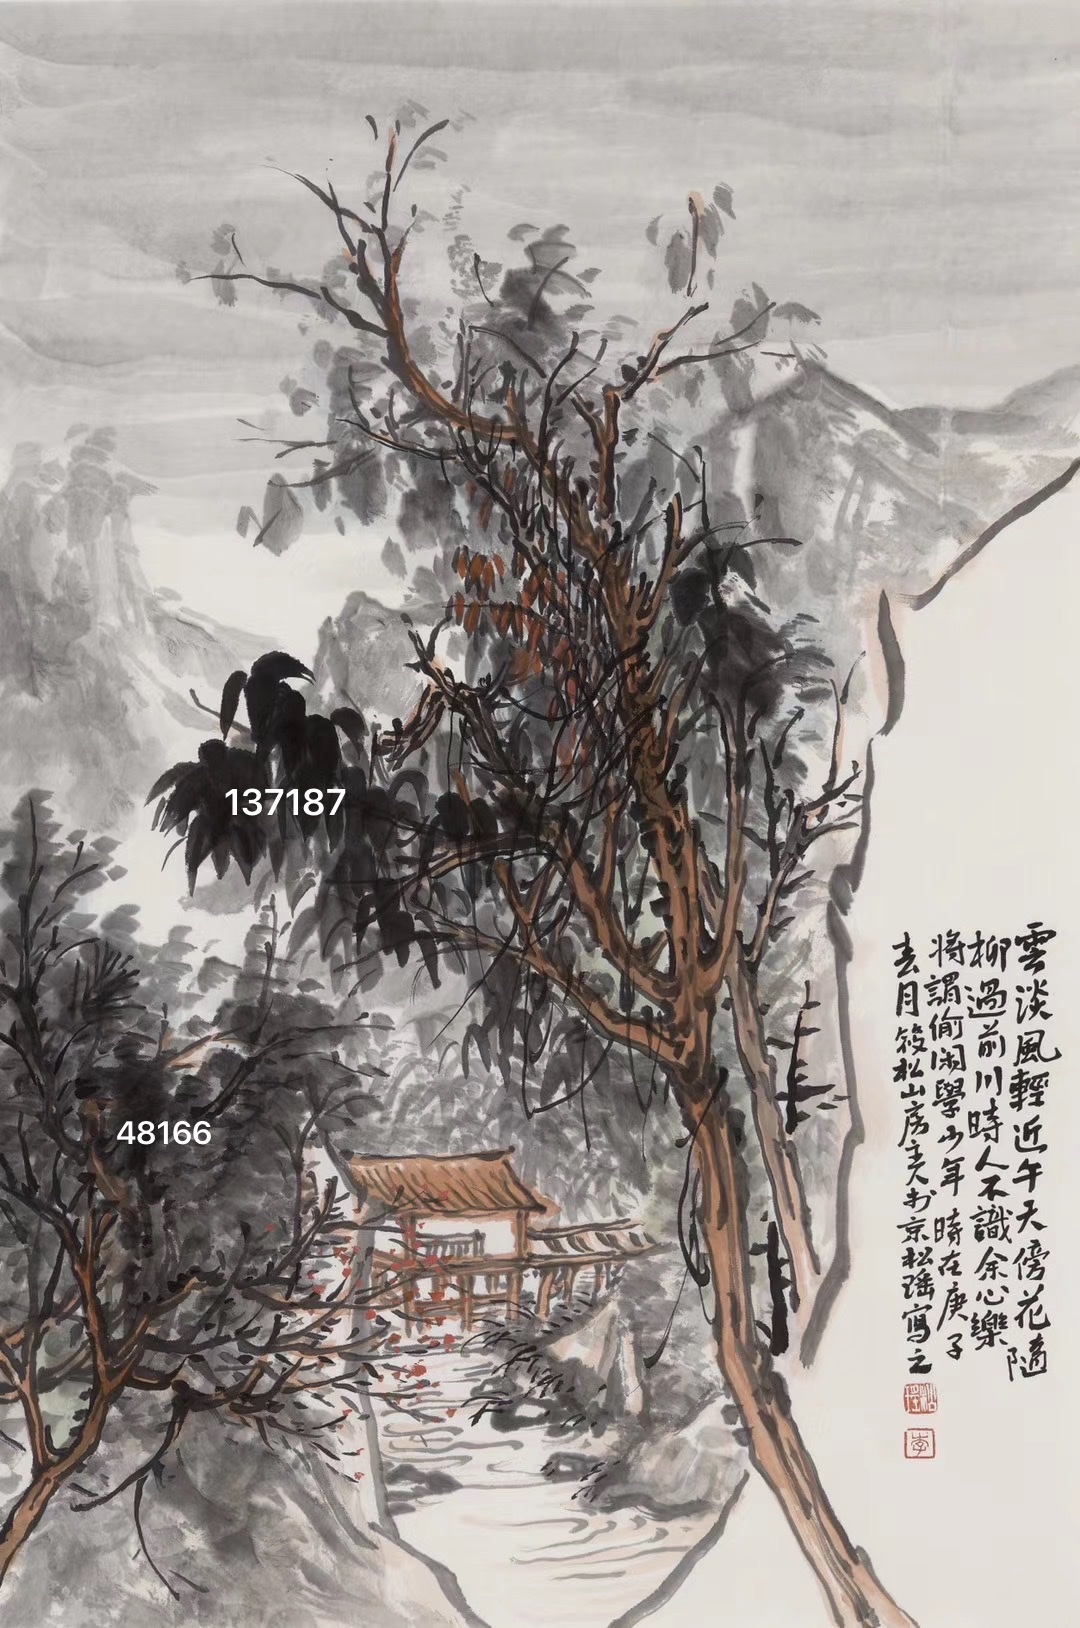 雲淡風輕近午天傍花隨
柳過前川時人不識余心樂
將謂偷閑學少年 時在庚子
去月筱松山房主人於京松瑶寫之
李
137187
48166